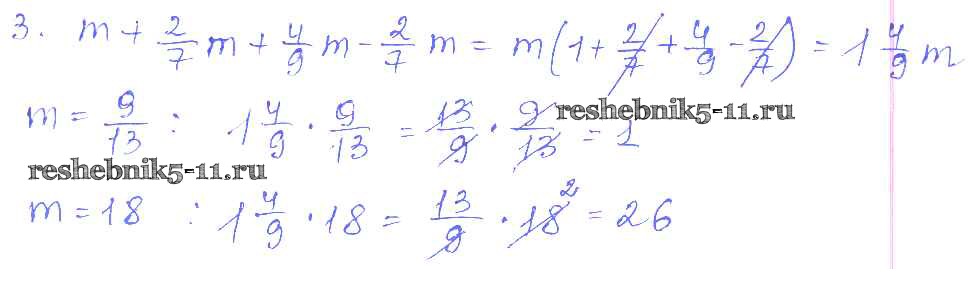 3. m + 2/7 m + 4/9 m - 2/7 m = m(1 + 2/7 + 4/9 - 2/7) = 1 4/9 m
m = 9/13 : 1 4/9 · 9/13 = 13/9 · 9/13 = 1
reshebnik5-11.ru
reshebnik5-11.ru
m = 18 : 1 4/9 · 18 = 13/9 · 18 2 = 26